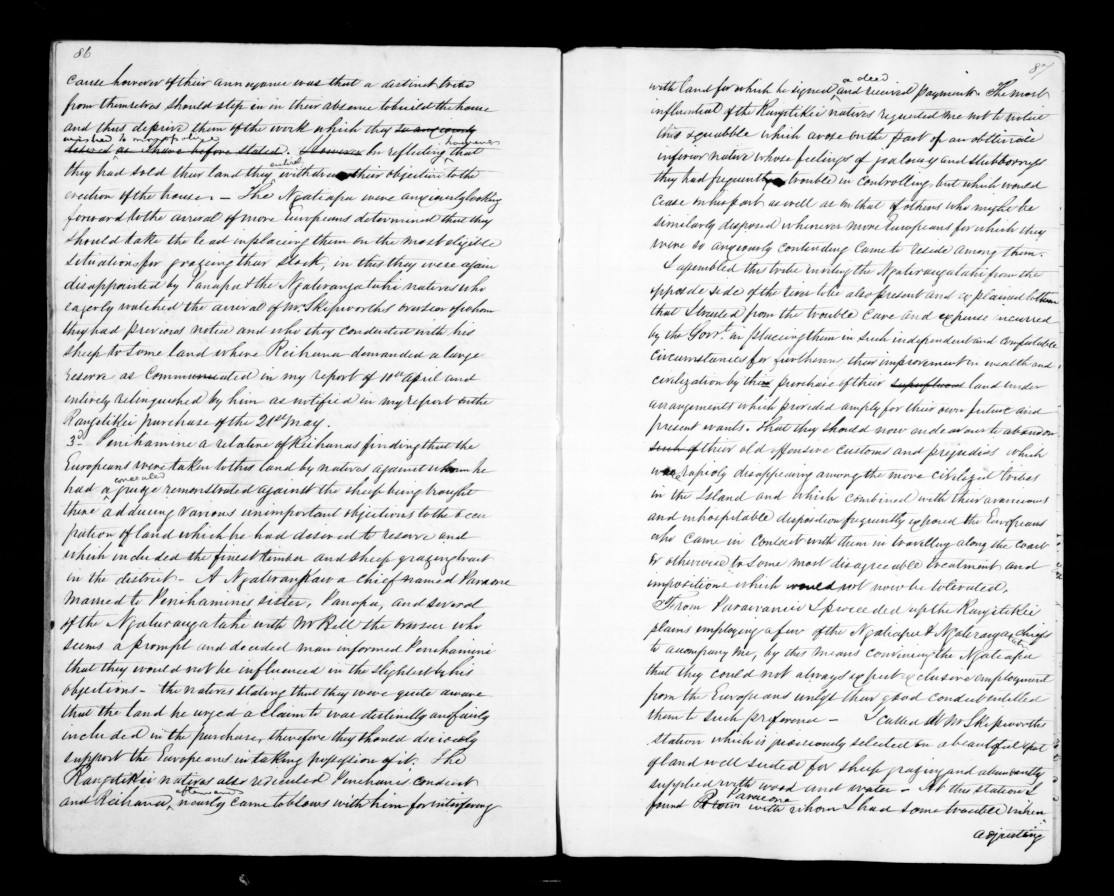 86
cause however of their annoyance was that a distinct tribe
from themselves should step in in their absence to build the house
and thus deprive them of the work which they so anxiously
wished to monopolize
desired as I have before stated. However on reflecting however that
they had sold their land they entirely withdrew their objection to the
erection of the house. — The Ngatiapa were anxiously looking
forward to the arrival of more Europeans determined that they
should take the lead in placing them on the most eligible
situations for grazing their stock, in this they were again
disappointed by Panapa & the Ngatirangatahi natives who
eagerly watched the arrival of Mr Skipworths overseer of whom
they had previous notice and who they conducted with his
sheep to some land where Reihana demanded a large
reserve as Communicated in my report of 10th April and
entirely relinquished by him as notified in my report on the
Rangitikei purchase of the 21st May.
3d Penihamine a relative of Reihanas finding that the
Europeans were taken to this land by natives against whom he
had concealed a grudge remonstrated against the sheep being brought
there adducing various unimportant objections to the occu
pation of land which he had desired to reserve and
which included the finest timber and sheep grazing tract
in the district — A Ngatiraukawa chief named Paraone
married to Penihamines sister, Panapa, and several
of the Ngatirangatahi with Mr Bell the overseer who
seems a prompt and decided man informed Penihamine
that they would not be influenced in the slightest by his
objections — the natives stating that they were quite aware
that the land he urged a claim to was distinctly and fairly
included in the purchase, therefore they should decisively
support the Europeans in taking possession of it. The
Rangitikei natives also resented Penihamine conduct
and Reihana afterwards nearly came to blows with him for interfering
87
with land for which he signed a deed and received payment. The most
influential of the Rangitikei natives requested me not to notice
this squabble which arose on the part of an obstinate
inferior native whose feelings of jealousy and stubborness
they had frequently trouble in controlling, but which would
cease on his part as well as on that of others who might be
similarly disposed whenever more Europeans for which they
were so anxiously contending came to reside among them.
I assembled this tribe inviting the Ngatirangatahi from the
opposite side of the river to be also present and explained to them
that I trusted from the trouble care and expense incurred
by the Govt. in placing them in such independent and comfortable
circumstances for furthering their improvement in wealth and
civilization by the purchase of their superfluous land under
arrangements which provided amply for their own future and
present wants. That they should now endeavour to abandon
such of their old offensive customs and prejudices which
was rapidly disappearing among the more civilized tribes
in the Island and which combined with their avaricious
and inhospitable disposition frequently exposed the Europeans
who came in contact with them in travelling along the coast
or otherwise to some most disagreeable treatment and
impositions which would not now be tolerated.
From Parawanui I proceeded up the Rangitikei
plains employing a few of the Ngatiapa & Ngatirangatahi chiefs
to accompany me, by this means convincing the Ngatiapa
that they could not always expect exclusive employment
from the Europeans unless their good conduct entitled
them to such preference — I called at Mr Skipworths
station which is judiciously selected on a beautiful spot
of land well suited for sheep grazing and abundantly
supplied with wood and water — At this station I
found Paraone with whom I had some trouble when
adjusting